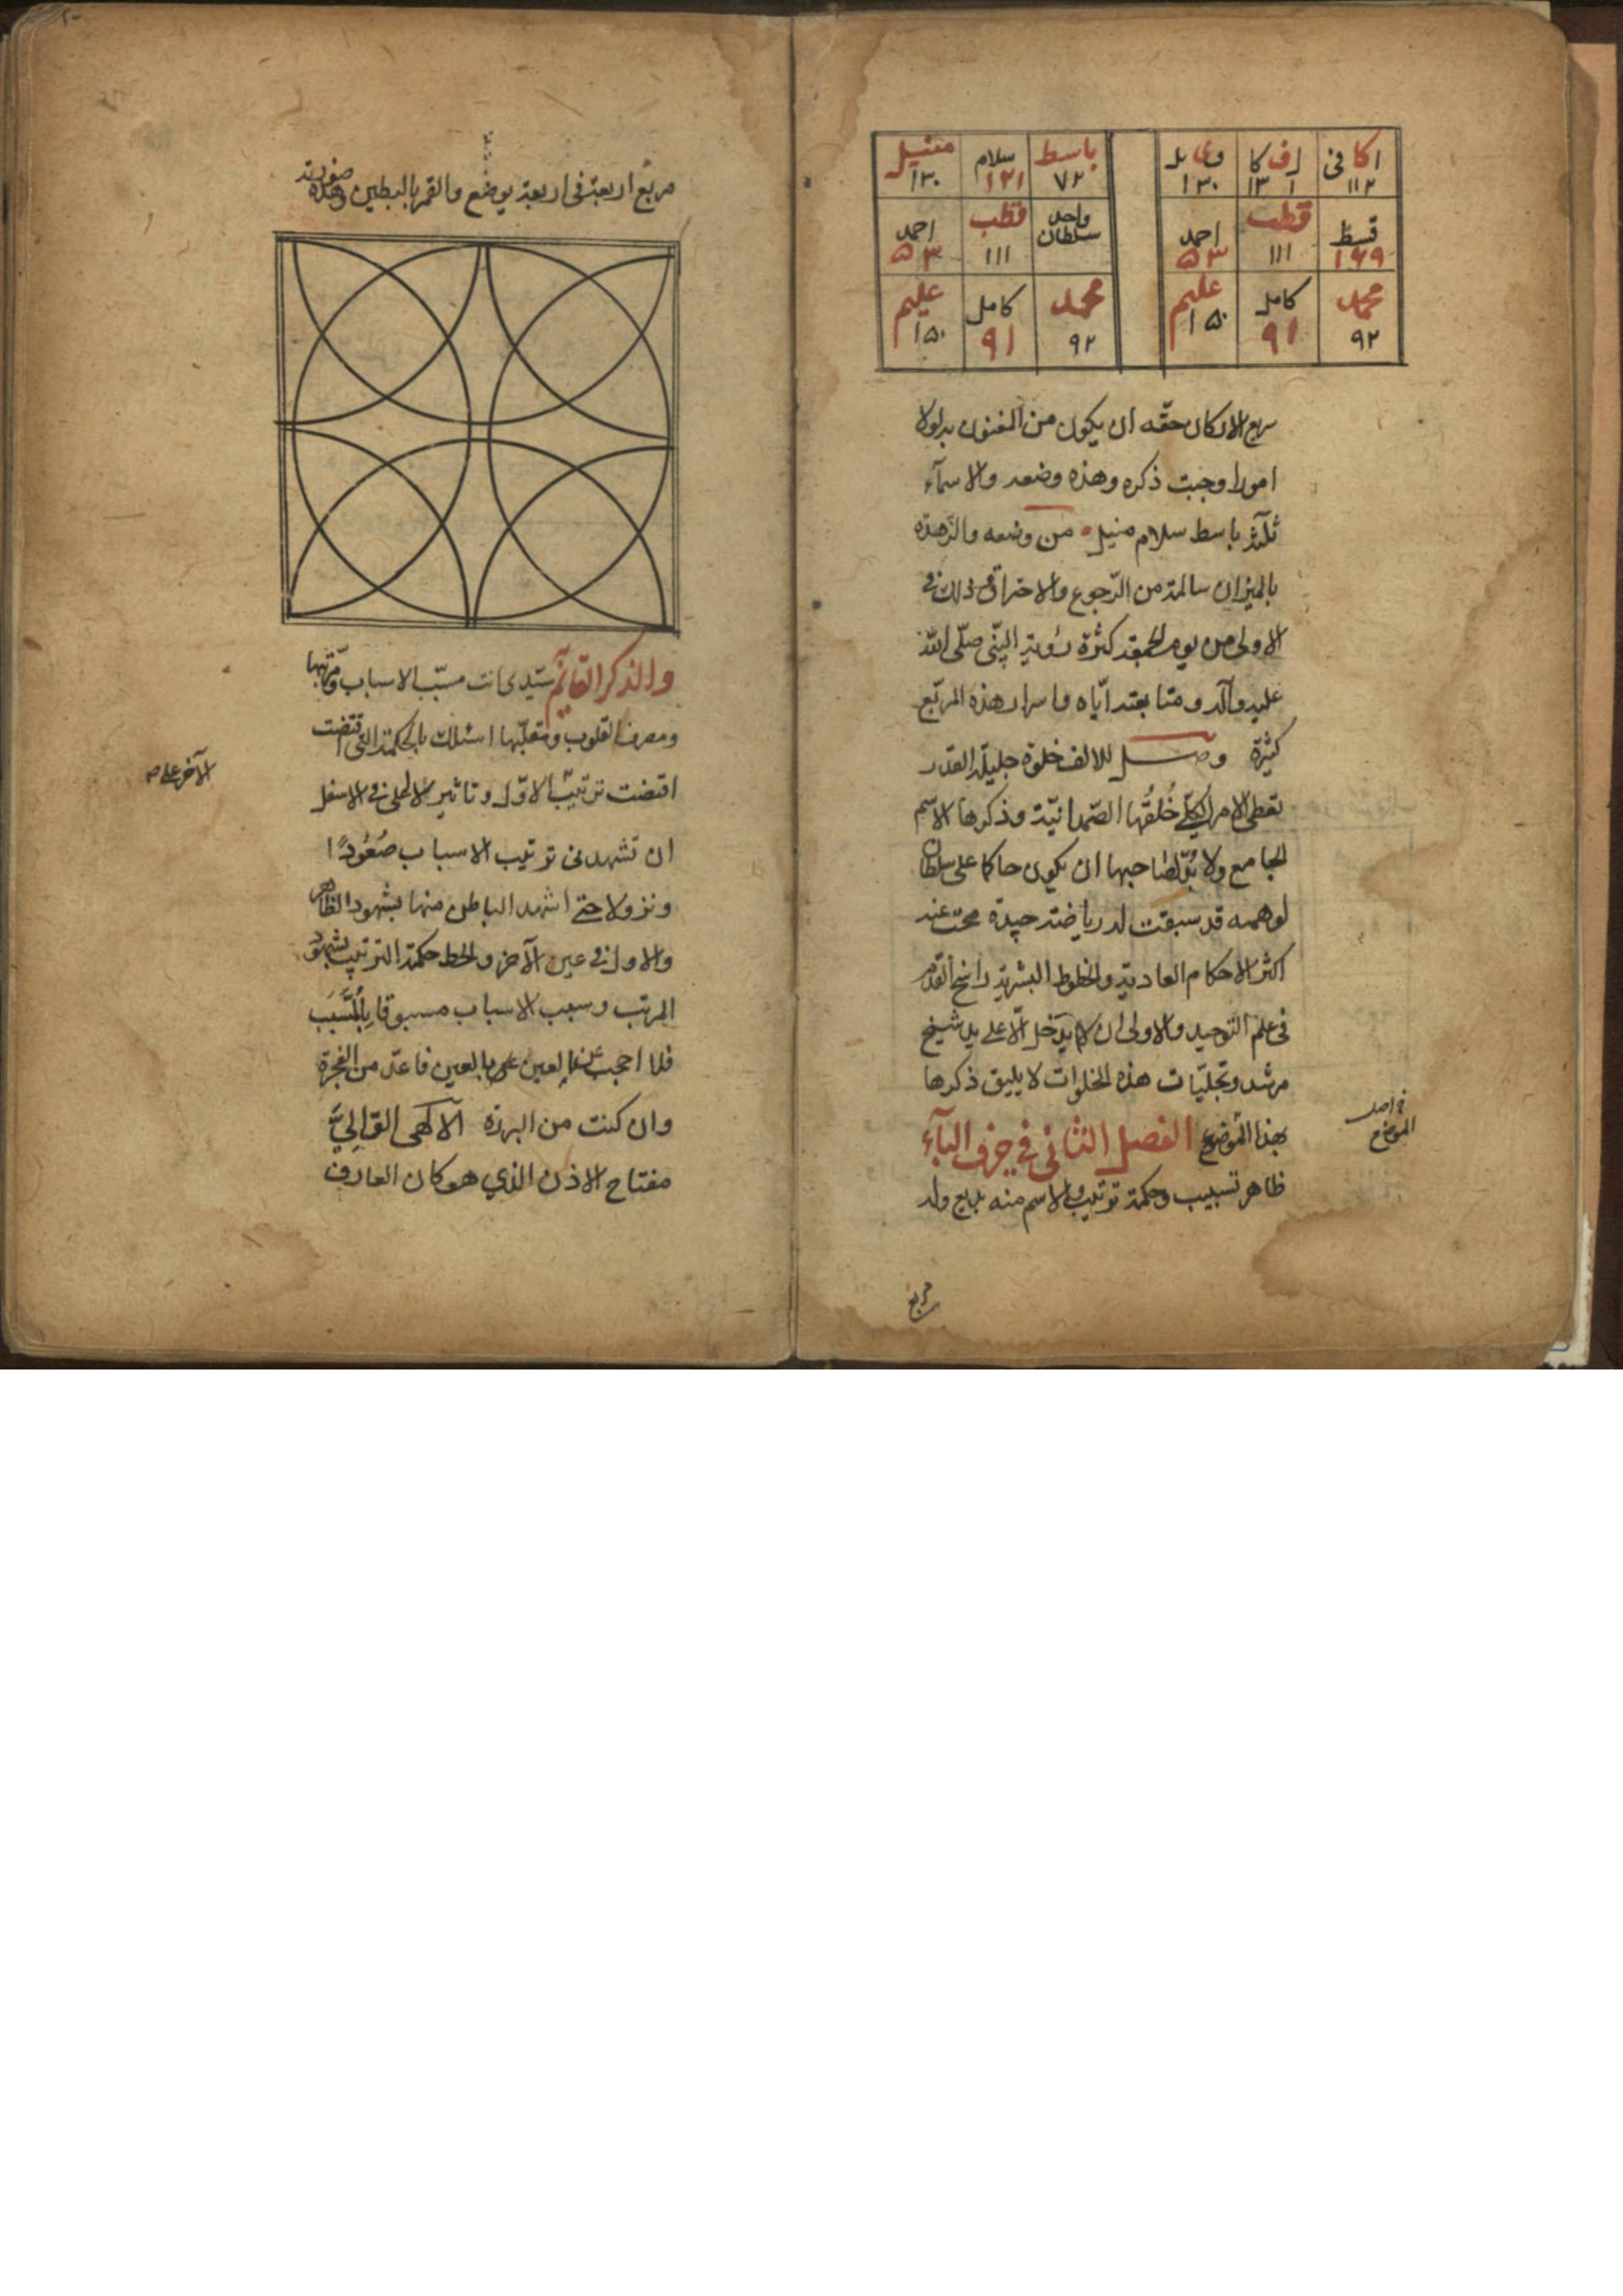 اكافى اف كا باسط سلام منيل
١١٢ ١٣١ ١٣٠ ٧٢ ١٢١ ١٣٠
قسط قطب احمد واحد سلطان قطب احمد
١٦٩ ١١١ ٥٣ ١١١ ٥٣
محمد كامل عليم محمد كامل عليم
٩٢ ٩١ ١٥٠ ٩٢ ٩١ ١٥٠
الاركان حقه ان يكون من المفنون بل لولا
امورا وجبت ذكره وهذه وضعه والاسمآء
ثلثة باسط سلام منيل من وضعه والزهرة
بالميزان سالمة من الرجوع والاحتراق وذلك فى
الاولى من يوم الجمعة كثرة رؤية النبى صلّى الله
عليه وآله ومتابعته ايّاه واسرار هذه المربّع
كثيرة وصل للالف خلوة جليلة القدر
تعطى الامر الكلّى خُلقُها الصّمدانيّة وذكرها الاسم
الجامع ولا بُدّ لصاحبها ان يكون حاكما على سلطان
لوهمه قد سبقت له رياضة جيدة محت عنه
اكثر الاحكام العادية والحظوظ البشرية راسخ القدم
فى علم التوحيد والاولى ان لا يدخل الّا على يد شيخ
مرشد وتجليّات هذه الخلوات لا يليق ذكرها
بهذا الموضع الفصل الثانى فى حرف البآء
ظاهر تسبيب وحكمة ترتيب والاسم منه بديع وله
الموضع
مربع
مربع اربعة فى اربعة يوضع والقمر بالبطين وهذه صورته
والذكر القائم سيّدى انت مسبّب الاسباب ومرتّبها
ومصرف القلوب ومقلّبها اسئلك بالحكمة التى اقتضت
اقتضت ترتيب الاوّل وتاثير الاعلى فى الاسفل
ان تشهدنى ترتيب الاسباب صُعُودًا
ونزولا حتى اشهد الباطن منها بشهود الظاهر
والاول فى عين الآخر والحظ حكمة الترتيب بشهود
المرتب وسبب الاسباب مسبوقا بِالْمُسَبِّب
فلا احجب عن العين بالعين فاعدّ من الفجرة
وان كنت من البررة الآلهى الق الىَّ
مفتاح الاذن الذي هو كان العارف
الآخر على